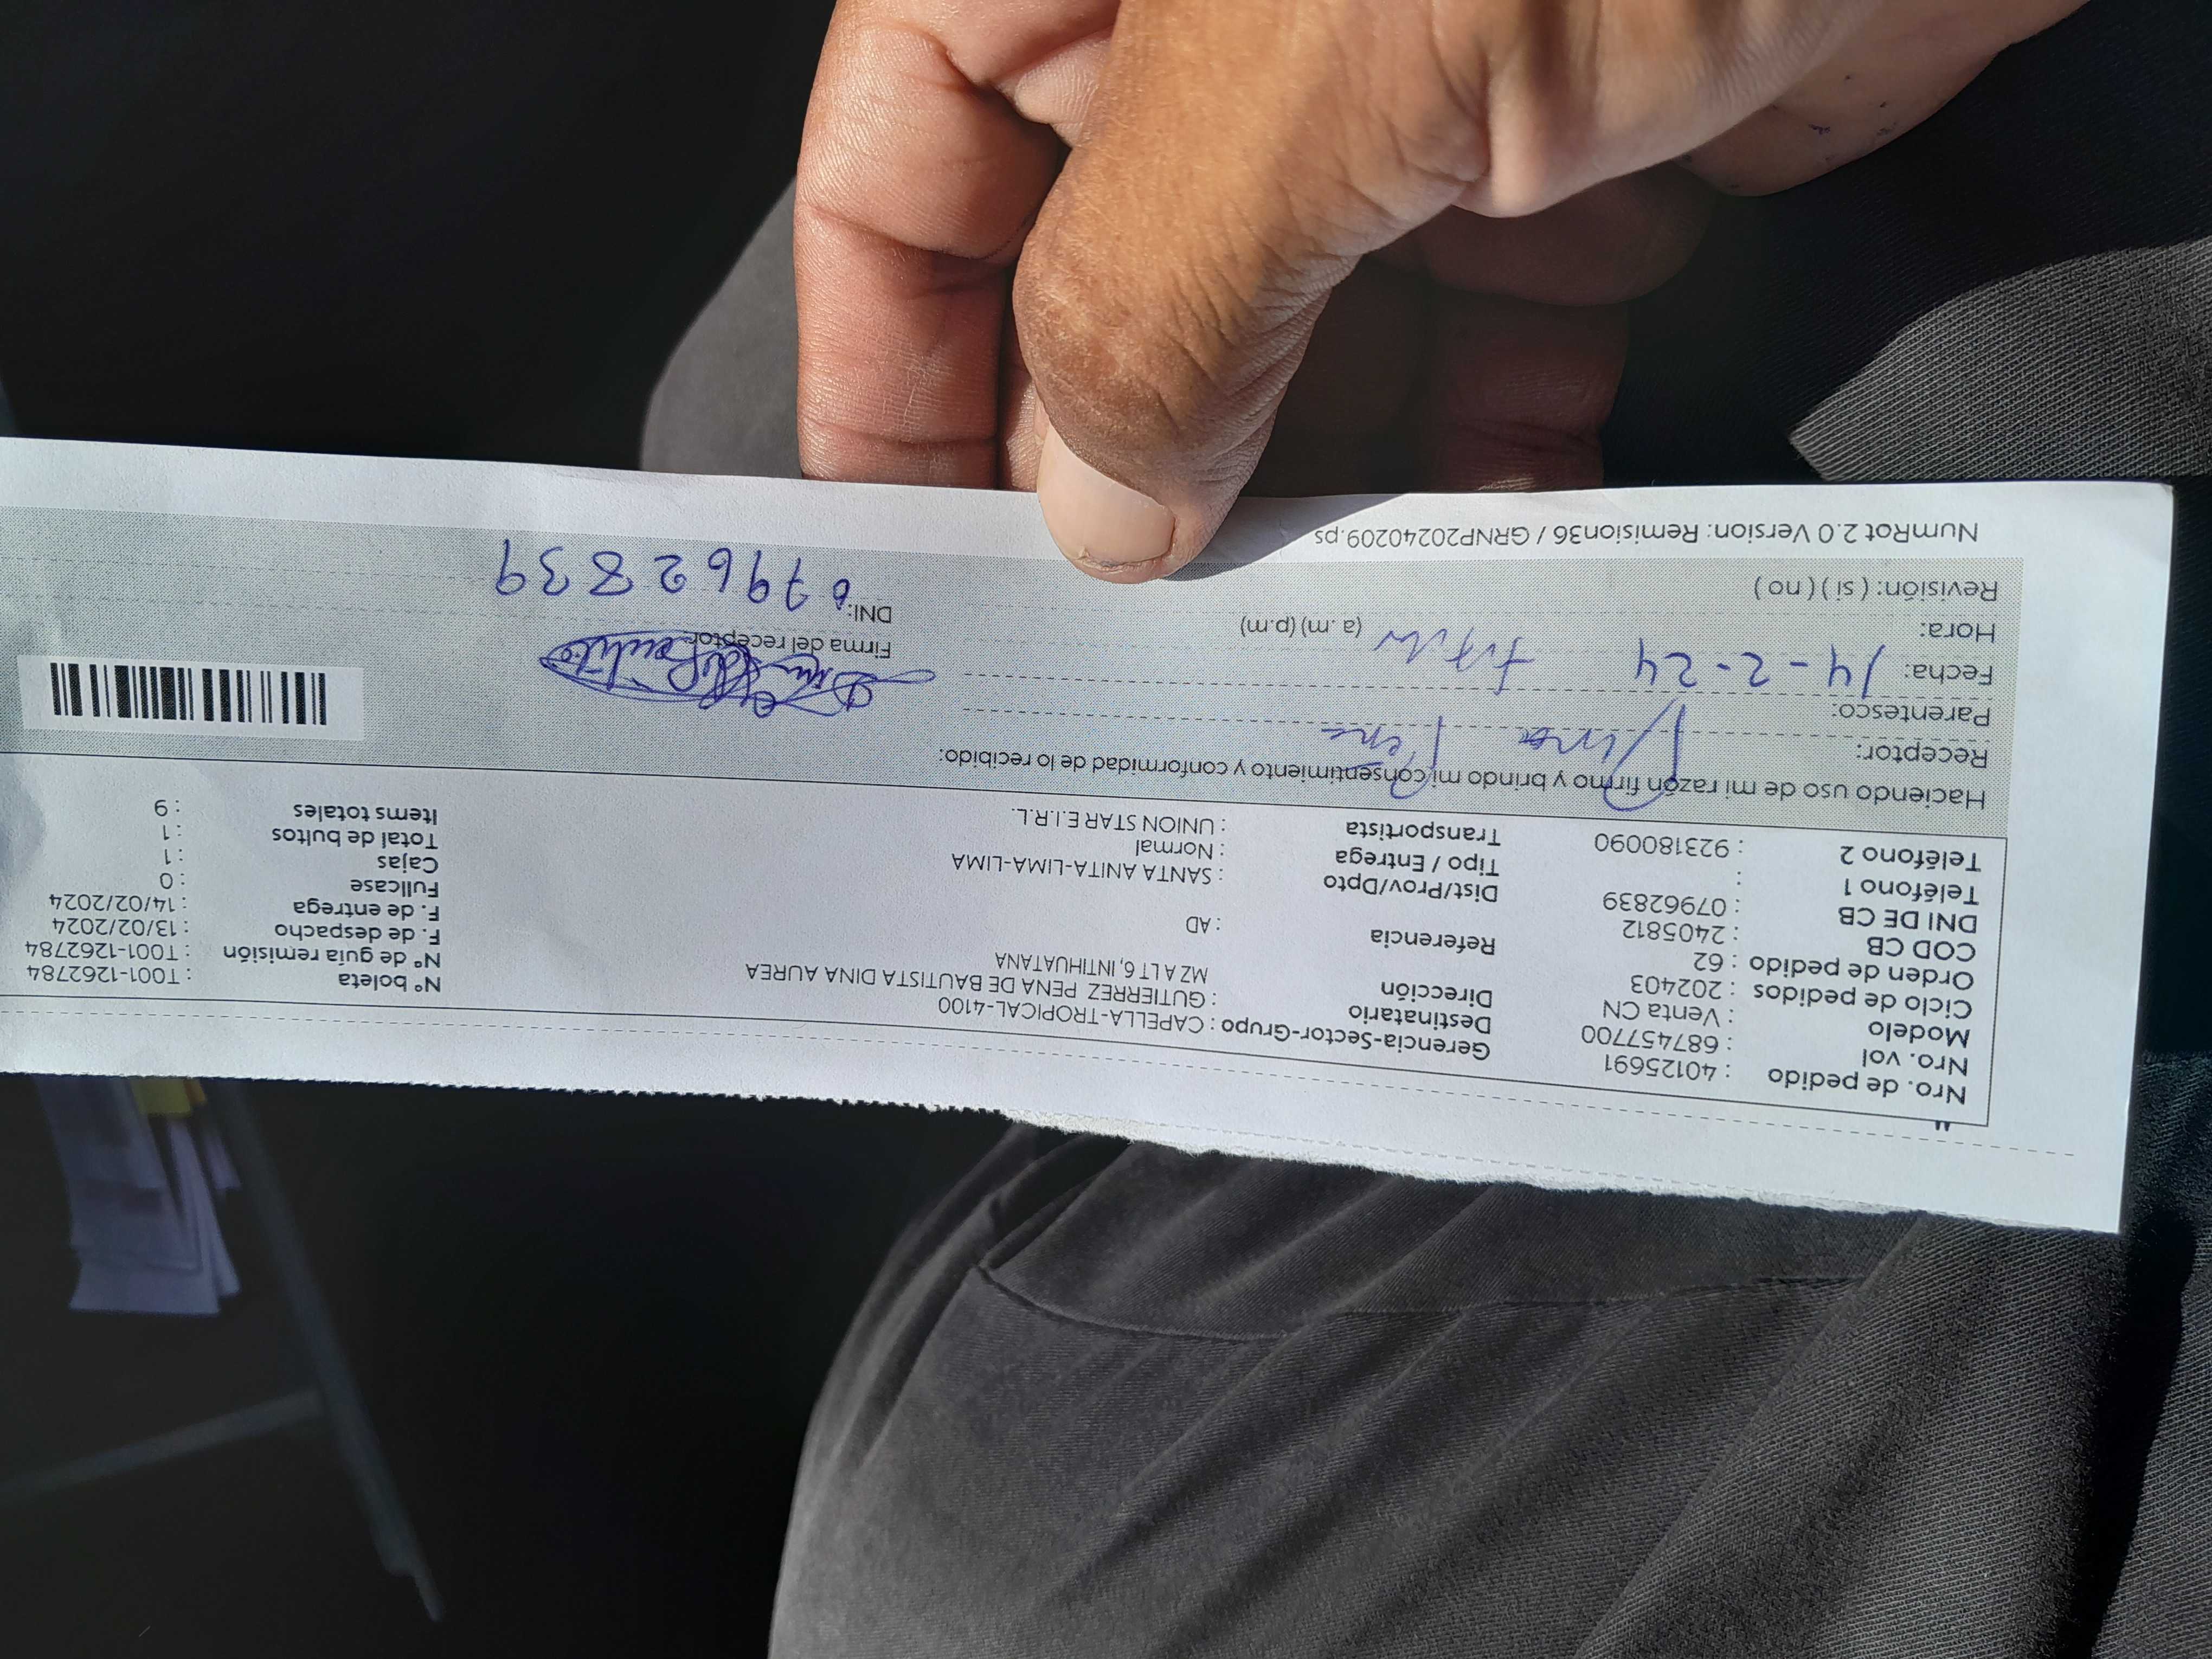 Nro. de pedido : 40125691
Nro. vol : 687457700
Modelo : Venta CN
Ciclo de pedidos : 202403
Orden de pedido : 62
COD CB : 2405812
DNI DE CB : 07962839
Teléfono 1 :
Teléfono 2 : 923180090
Gerencia-Sector-Grupo : CAPELLA-TROPICAL-4100
Destinatario : GUTIERREZ PENA DE BAUTISTA DINA AUREA
Dirección MZ A LT 6, INTIHUATANA
Referencia : AD
Dist/Prov/Dpto : SANTA ANITA-LIMA-LIMA
Tipo / Entrega : Normal
Transportista : UNION STAR E.I.R.L.
Nº boleta : T001-1262784
Nº de guía remisión : T001-1262784
F. de despacho : 13/02/2024
F. de entrega : 14/02/2024
Fullcase : 0
Cajas : 1
Total de bultos : 1
Items totales : 9
Haciendo uso de mi razón firmo y brindo mi consentimiento y conformidad de lo recibido:
Receptor: Dina Pena
Parentesco:
Fecha: 14-2-24
Hora: (a.m) (p.m)
Revisión: ( si ) ( no )
Firma del receptor
DNI: 07962839
NumRot 2.0 Version: Remision36 / GRNP20240209.ps